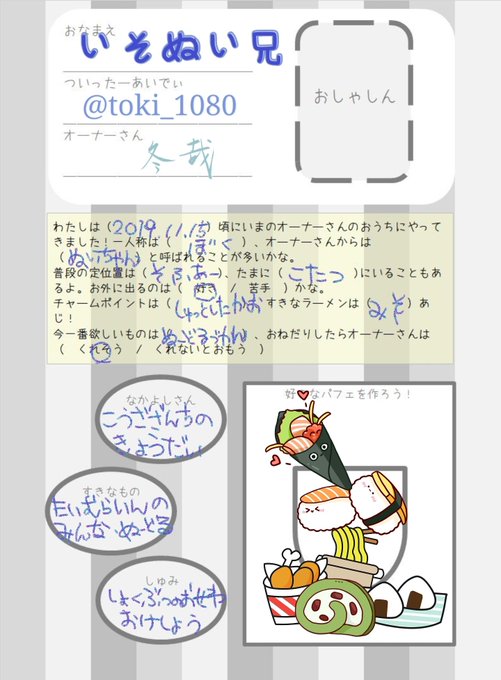 おなまえ
いそぬい兄
ついったーあいでぃ
@toki_1080
オーナーさん
冬哉
おしゃしん
わたしは(2019.11.15)頃にいまのオーナーさんのおうちにやって
きました!一人称は( ぼく )、オーナーさんからは
(ぬいちゃん)と呼ばれることが多いかな。
普段の定位置は(そふぁー)、たまに(こたつ)にいることもあ
るよ。お外に出るのは( 好き / 苦手 )かな。
チャームポイントは(しゅっとしたかお すきなラーメンは(みそ)あ
じ!
今一番欲しいものはぬーどるづかん、おねだりしたらオーナーさんは
( くれそう / くれないとおもう )
なかよしさん
こうざさんちの
きょうだい
すきなもの
たいむらいんの
みんな ぬーどる
しゅみ
しょくぶつのおせわ
おけしょう
好きなパフェを作ろう!